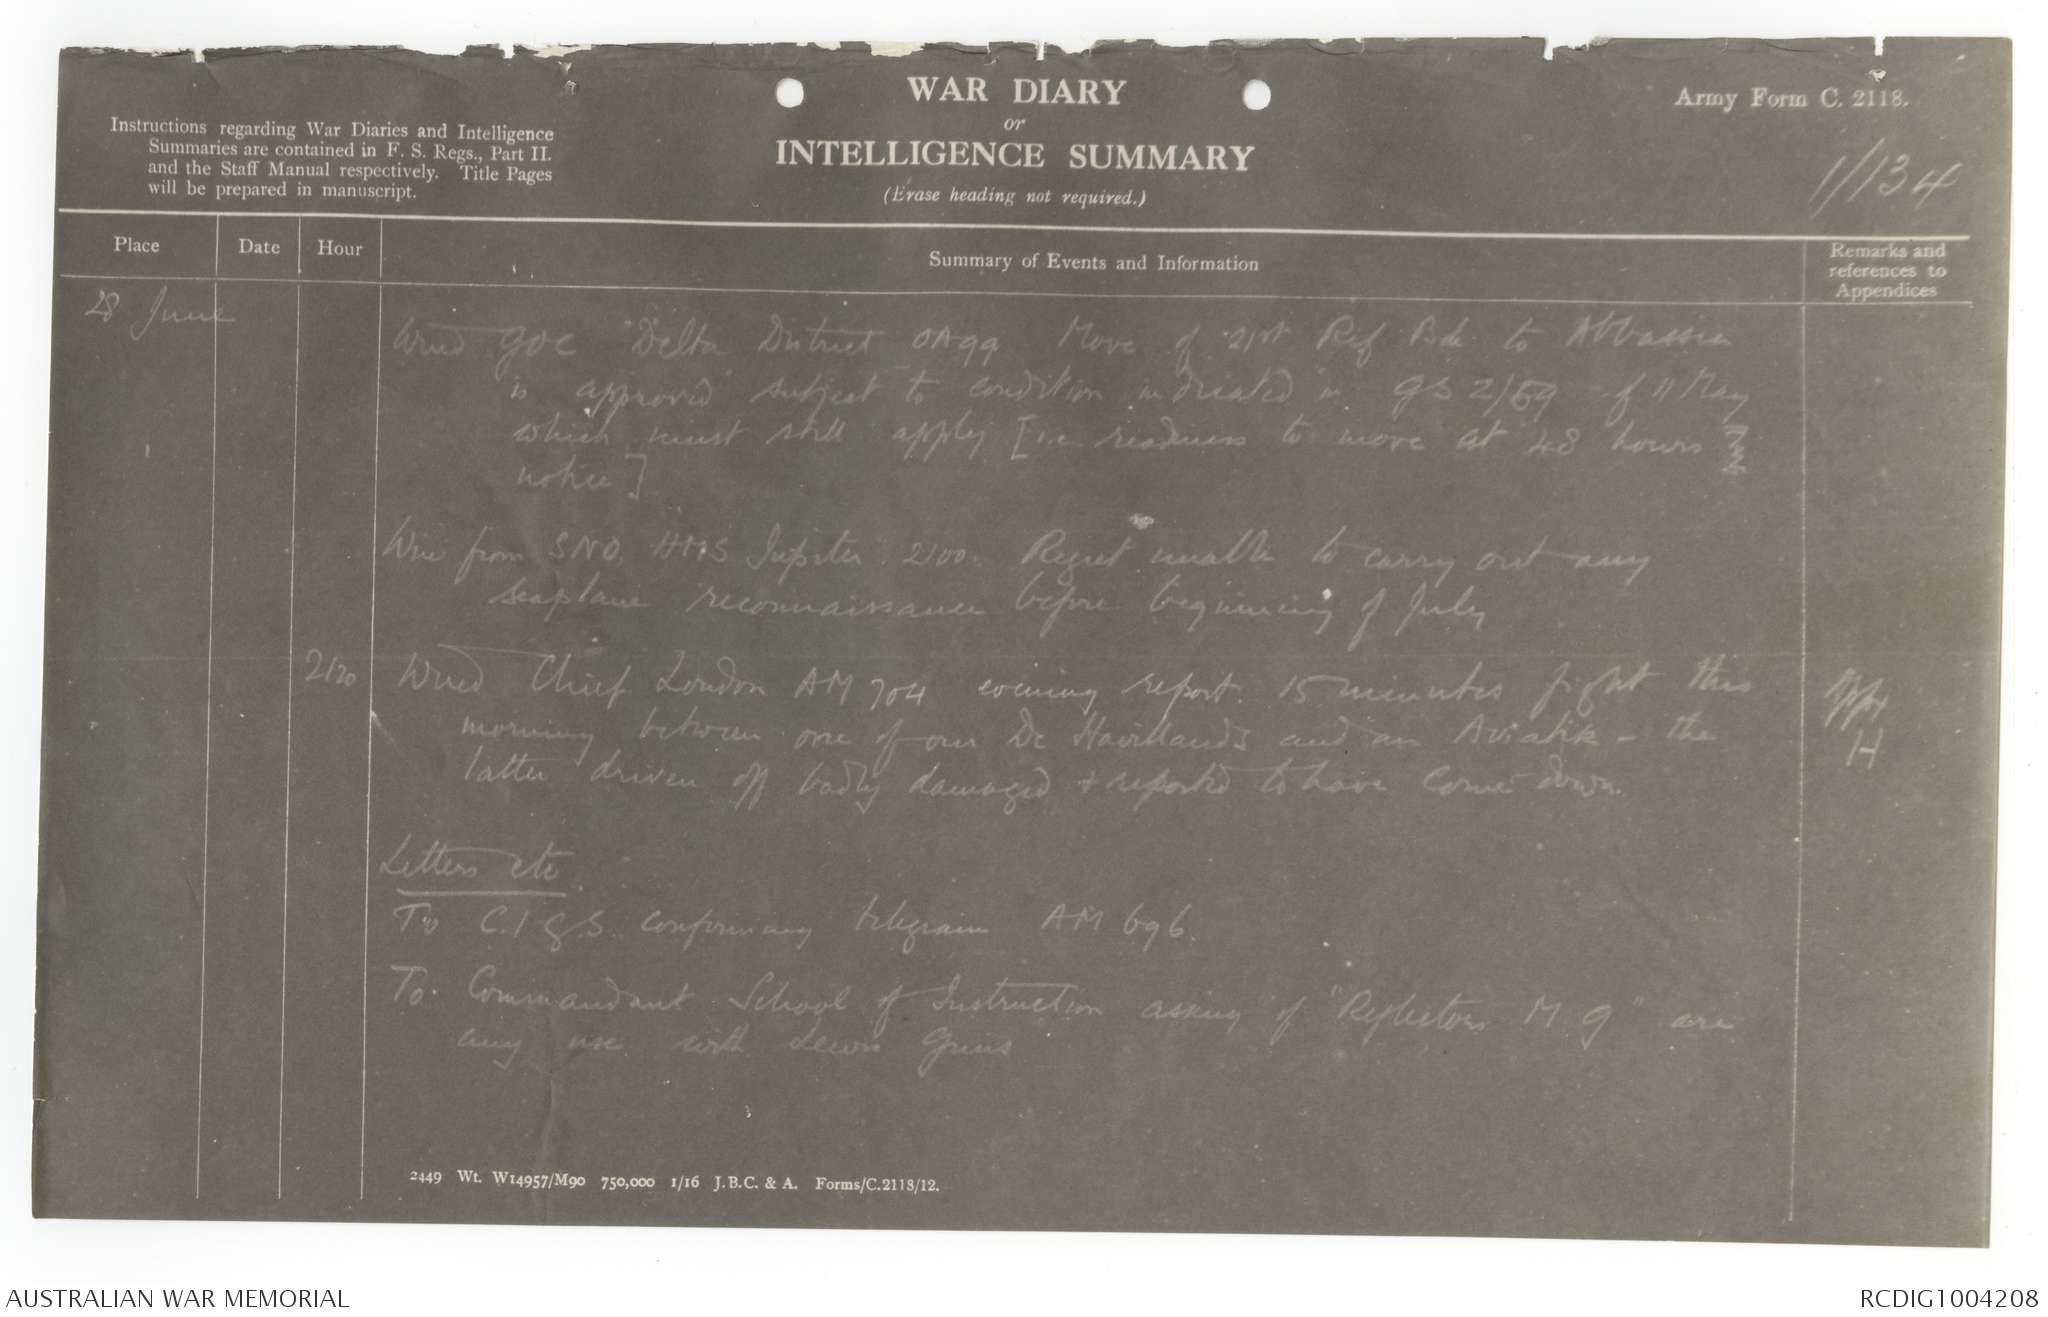 WAR DIARY
or
INTELLIGENCE SUMMARY
(Erase heading not required.)
Army Form C. 2118.
Instructions regarding War Diaries and Intelligence
Summaries are contained in F. S. Regs., Part II.
and the Staff Manual respectively. Title Pages
will be prepared in manuscript.
1/134
Place
Date
Hour
Summary of Events and Information
Remarks and
references to
Appendices
28 June
Wired GOC Delta District OA99 Move of 21st Bde to Abbassia
is approved subject to condition indicated in GS 2/59 of 11 May
which must still apply [i.e. readiness to move at 48 hours
notice]
Wire from SNO. HMS Jupiter 2100. Regret unable to carry out any
seaplane reconnaissance before beginning of July
2120 Wired Chief London AM 704 evening report. 15 minutes fight this
morning between one of our De Havillands and an Aviatik - the
latter driven off badly damaged & reported to have come down.
Appx
H
Letters etc.
To C.I.G.S. confirming telegram AM 696.
To Commandant School of Instruction asking if "Reflectors M G" are
any use with Lewis Guns
2449 Wt. W14957/M90 750,000 1/16 J.B.C. & A. Forms/C.2118/12.
AUSTRALIAN WAR MEMORIAL
RCDIG1004208